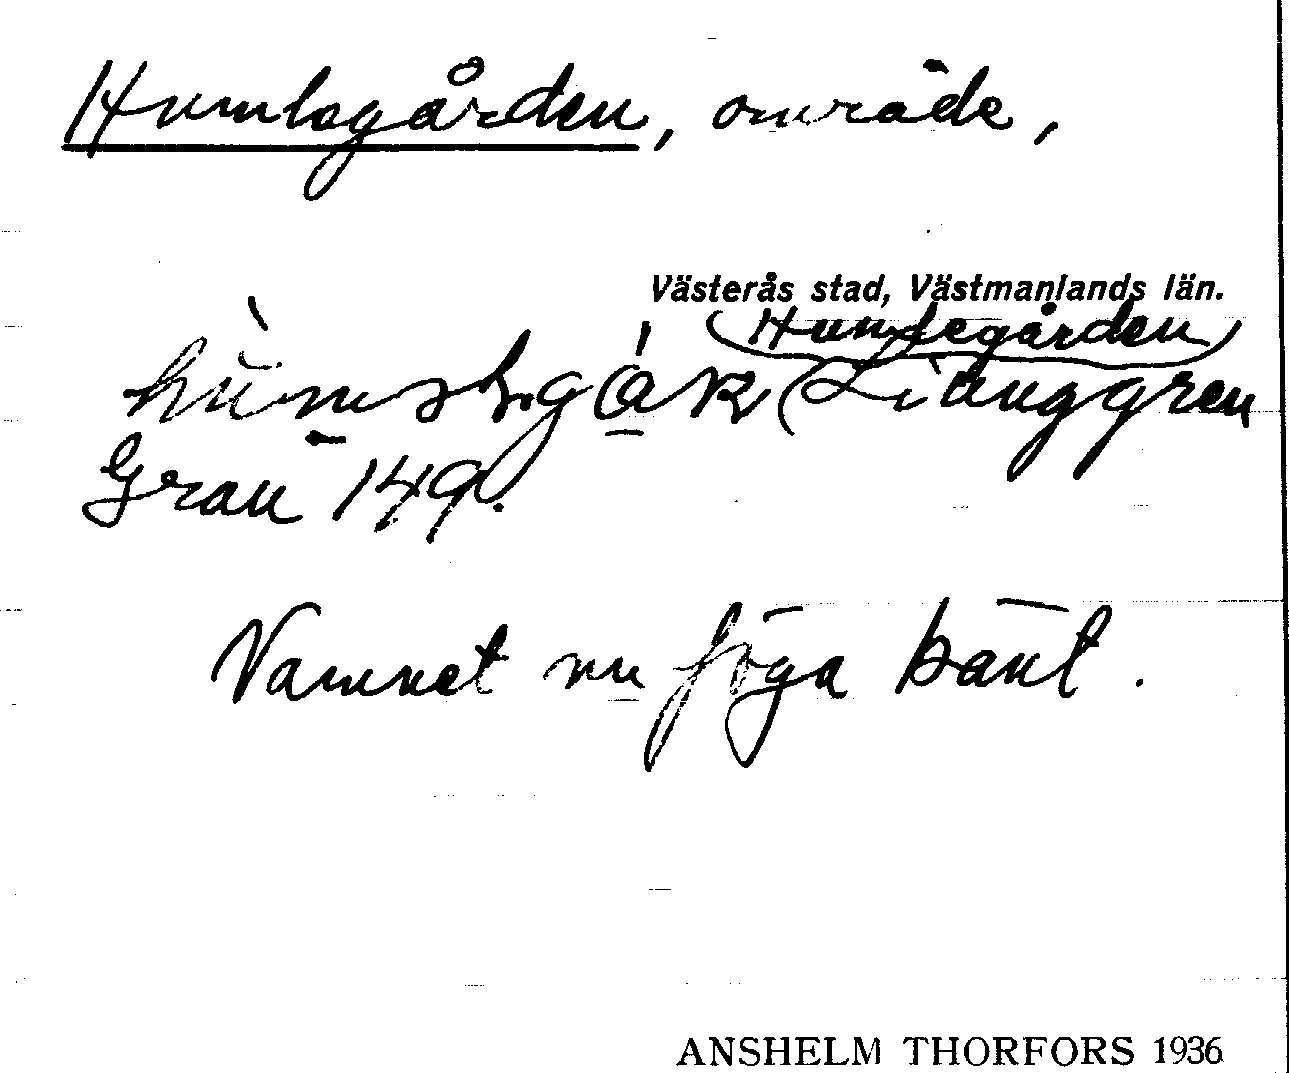 Humlegården, område,
Västerås stad, Västmanlands län.
(Humlegården)
(Ljunggren
Gran 149.
Namnet nu föga känt.
ANSHELM THORFORS 1936